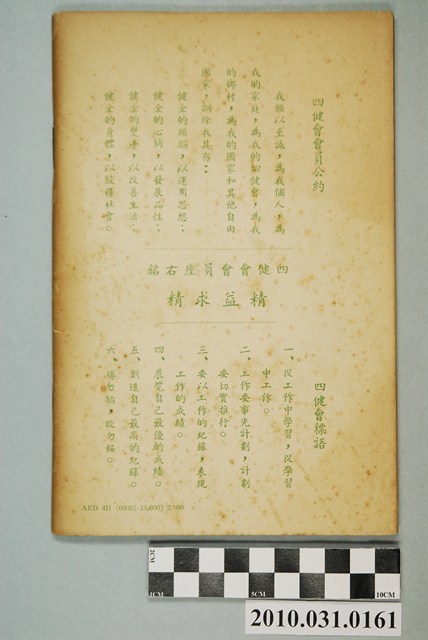 四健會會員公約
我願以至誠，為我個人，為
我的家庭，為我的四健會，為我
的鄉村，為我的國家和其他自由
國家，訓練我具有：
健全的頭腦，以運用思想，
健全的心胸，以發展品性，
健全的雙手，以改善生活，
健全的身體，以服務社會。
四健會會員座右銘
精益求精
四健會標語
一、從工作中學習，從學習
中工作。
二、工作要事先計劃，計劃
要切實推行。
三、要以工作的紀錄，表現
工作的成績。
四、展覽自己最優的成績。
五、創造自己最高的紀錄。
六、勝勿驕，敗勿餒。
AED 4H (00001-15,000) 2/60
2CM
1CM
5CM
10CM
2010.031.0161